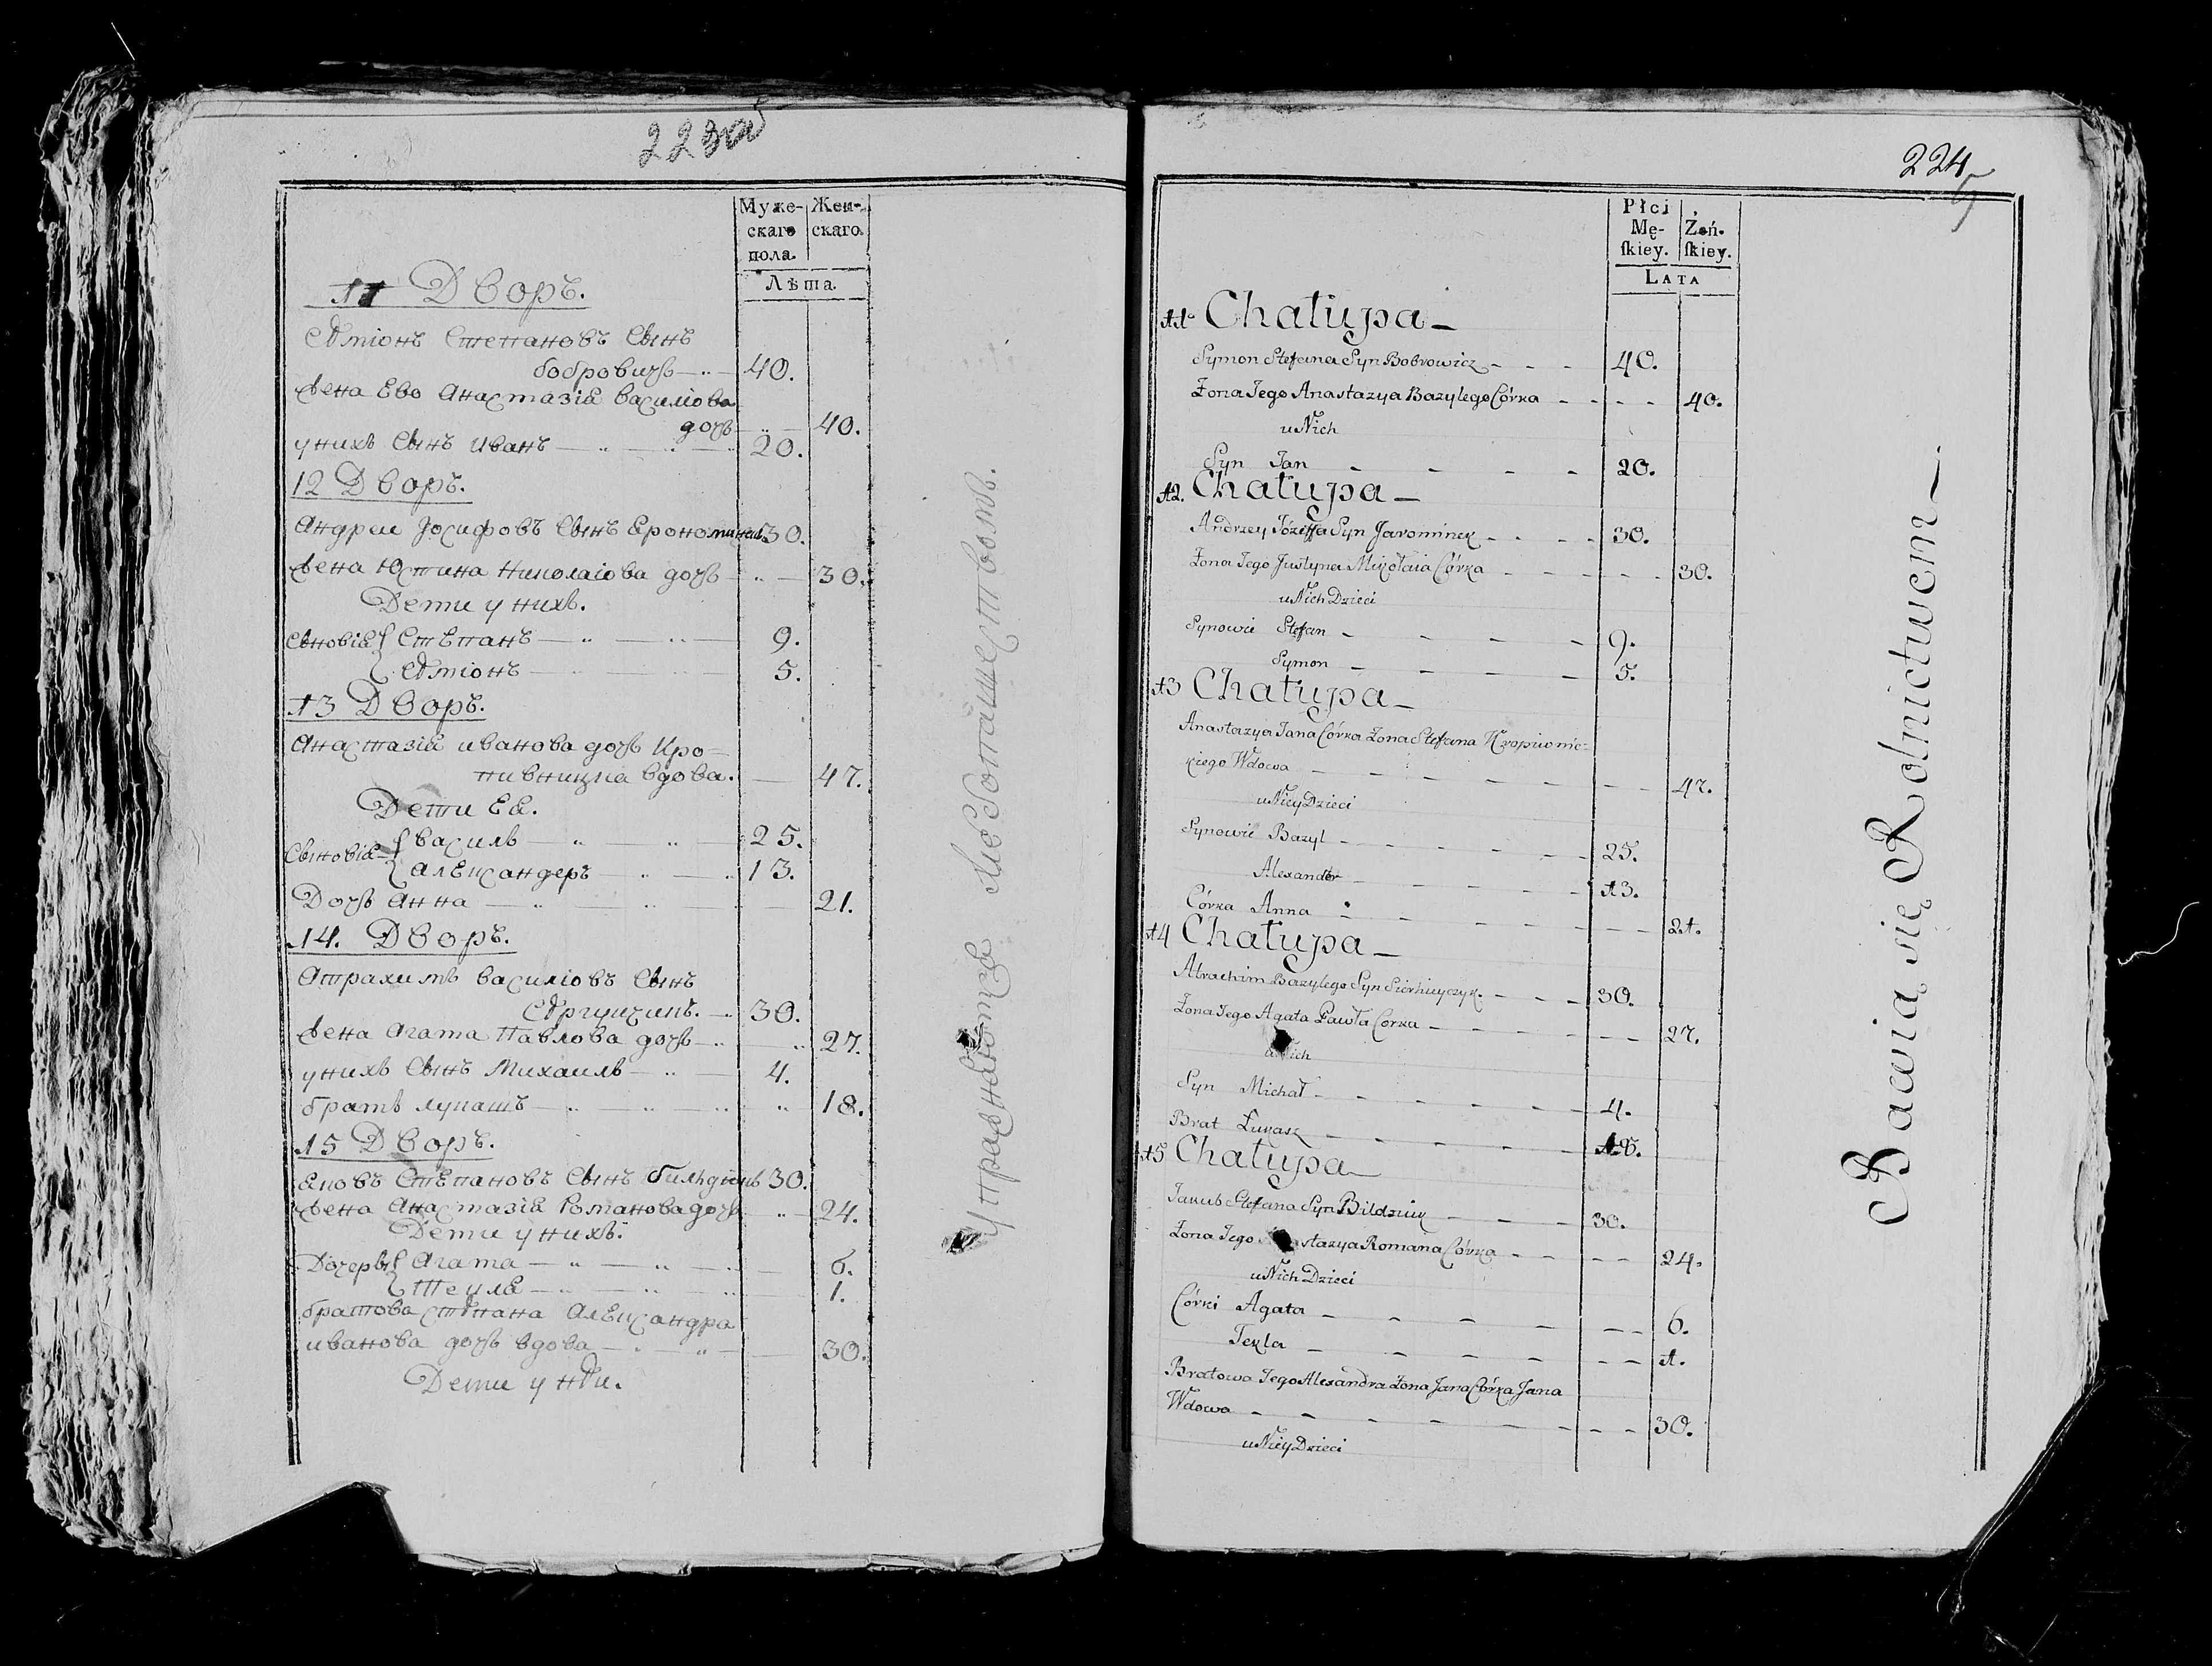 223 об
Муже-
скаго
пола.
Жен-
скаго.
Лѣта
11 Дворъ.
Сѣмiонъ Степановъ Сынъ
бобровичъ 40.
жена Ево Анастазiя василiова
дочъ 40.
у нихъ Сынъ иванъ 20.
12 Дворъ.
Андреи Іосифовъ Сынъ Ерономинекъ 30.
жена Юстина Николаiова дочъ 30.
Дети у нихъ.
Сыновiя Степанъ 9.
Сѣмiонъ 5.
13 Дворъ.
Анастазiя иванова дочъ Кро=
пивницка вдова. 47.
Дети Ея.
Сыновiя василь 25.
алеѯандеръ 13.
Дочъ Анна 21.
14. Дворъ.
Атрахимъ василiовъ Сынъ
30.
жена Агата Павлова дочъ 27.
у нихъ Сынъ Михаилъ 4.
братъ лукашъ 18.
15 Дворъ.
Яковъ Степановъ Сынъ бильдюкъ 30.
жена Анастазiя Романова дочъ 24.
Дети у нихъ.
Дочеры Агата 6.
Текля 1.
братова Алеѯандра
иванова дочъ вдова 30.
Дети у нѣи.
Упражнаются Хлебопашествомъ.
224
5
Płci
Mę-
ſkiey.
Żeń-
ſkiey.
LATA
11 Chałupa
Symon Stefana Syn Bobrowicz 40.
Żona Jego Anastazya Bazylego Córka 40.
u Nich
Syn Jan 20.
12. Chałupa
Andrzey Józeffa Syn Jarominek 30.
Żona Jego Justyna Mikołaia Córka 30.
u Nich Dzieci
Synowie Stefan 9.
Symon 5.
13 Chałupa
Anastazya Jana Córka Żona Stefana Kropiwnic=
kiego Wdowa 47.
u Niey Dzieci
Synowie Bazyl 25.
Alexander 13.
Córka Anna 21.
14 Chałupa
Atrachim Bazylego Syn 30.
Żona Jego Agata Pawła Corka 27.
u Nich
Syn Michał 4.
Brat Łukasz 18.
15 Chałupa
Jakub Stefana Syn Bildziuk 30.
Żona Jego Anastazya Romana Córka 24.
u Nich Dzieci
Córki Agata 6.
Tekla 1.
Bratowa Jego Alexandra Żona Jana Córka Jana
Wdowa 30.
u Niey Dzieci
Bawią się Rolnictwem